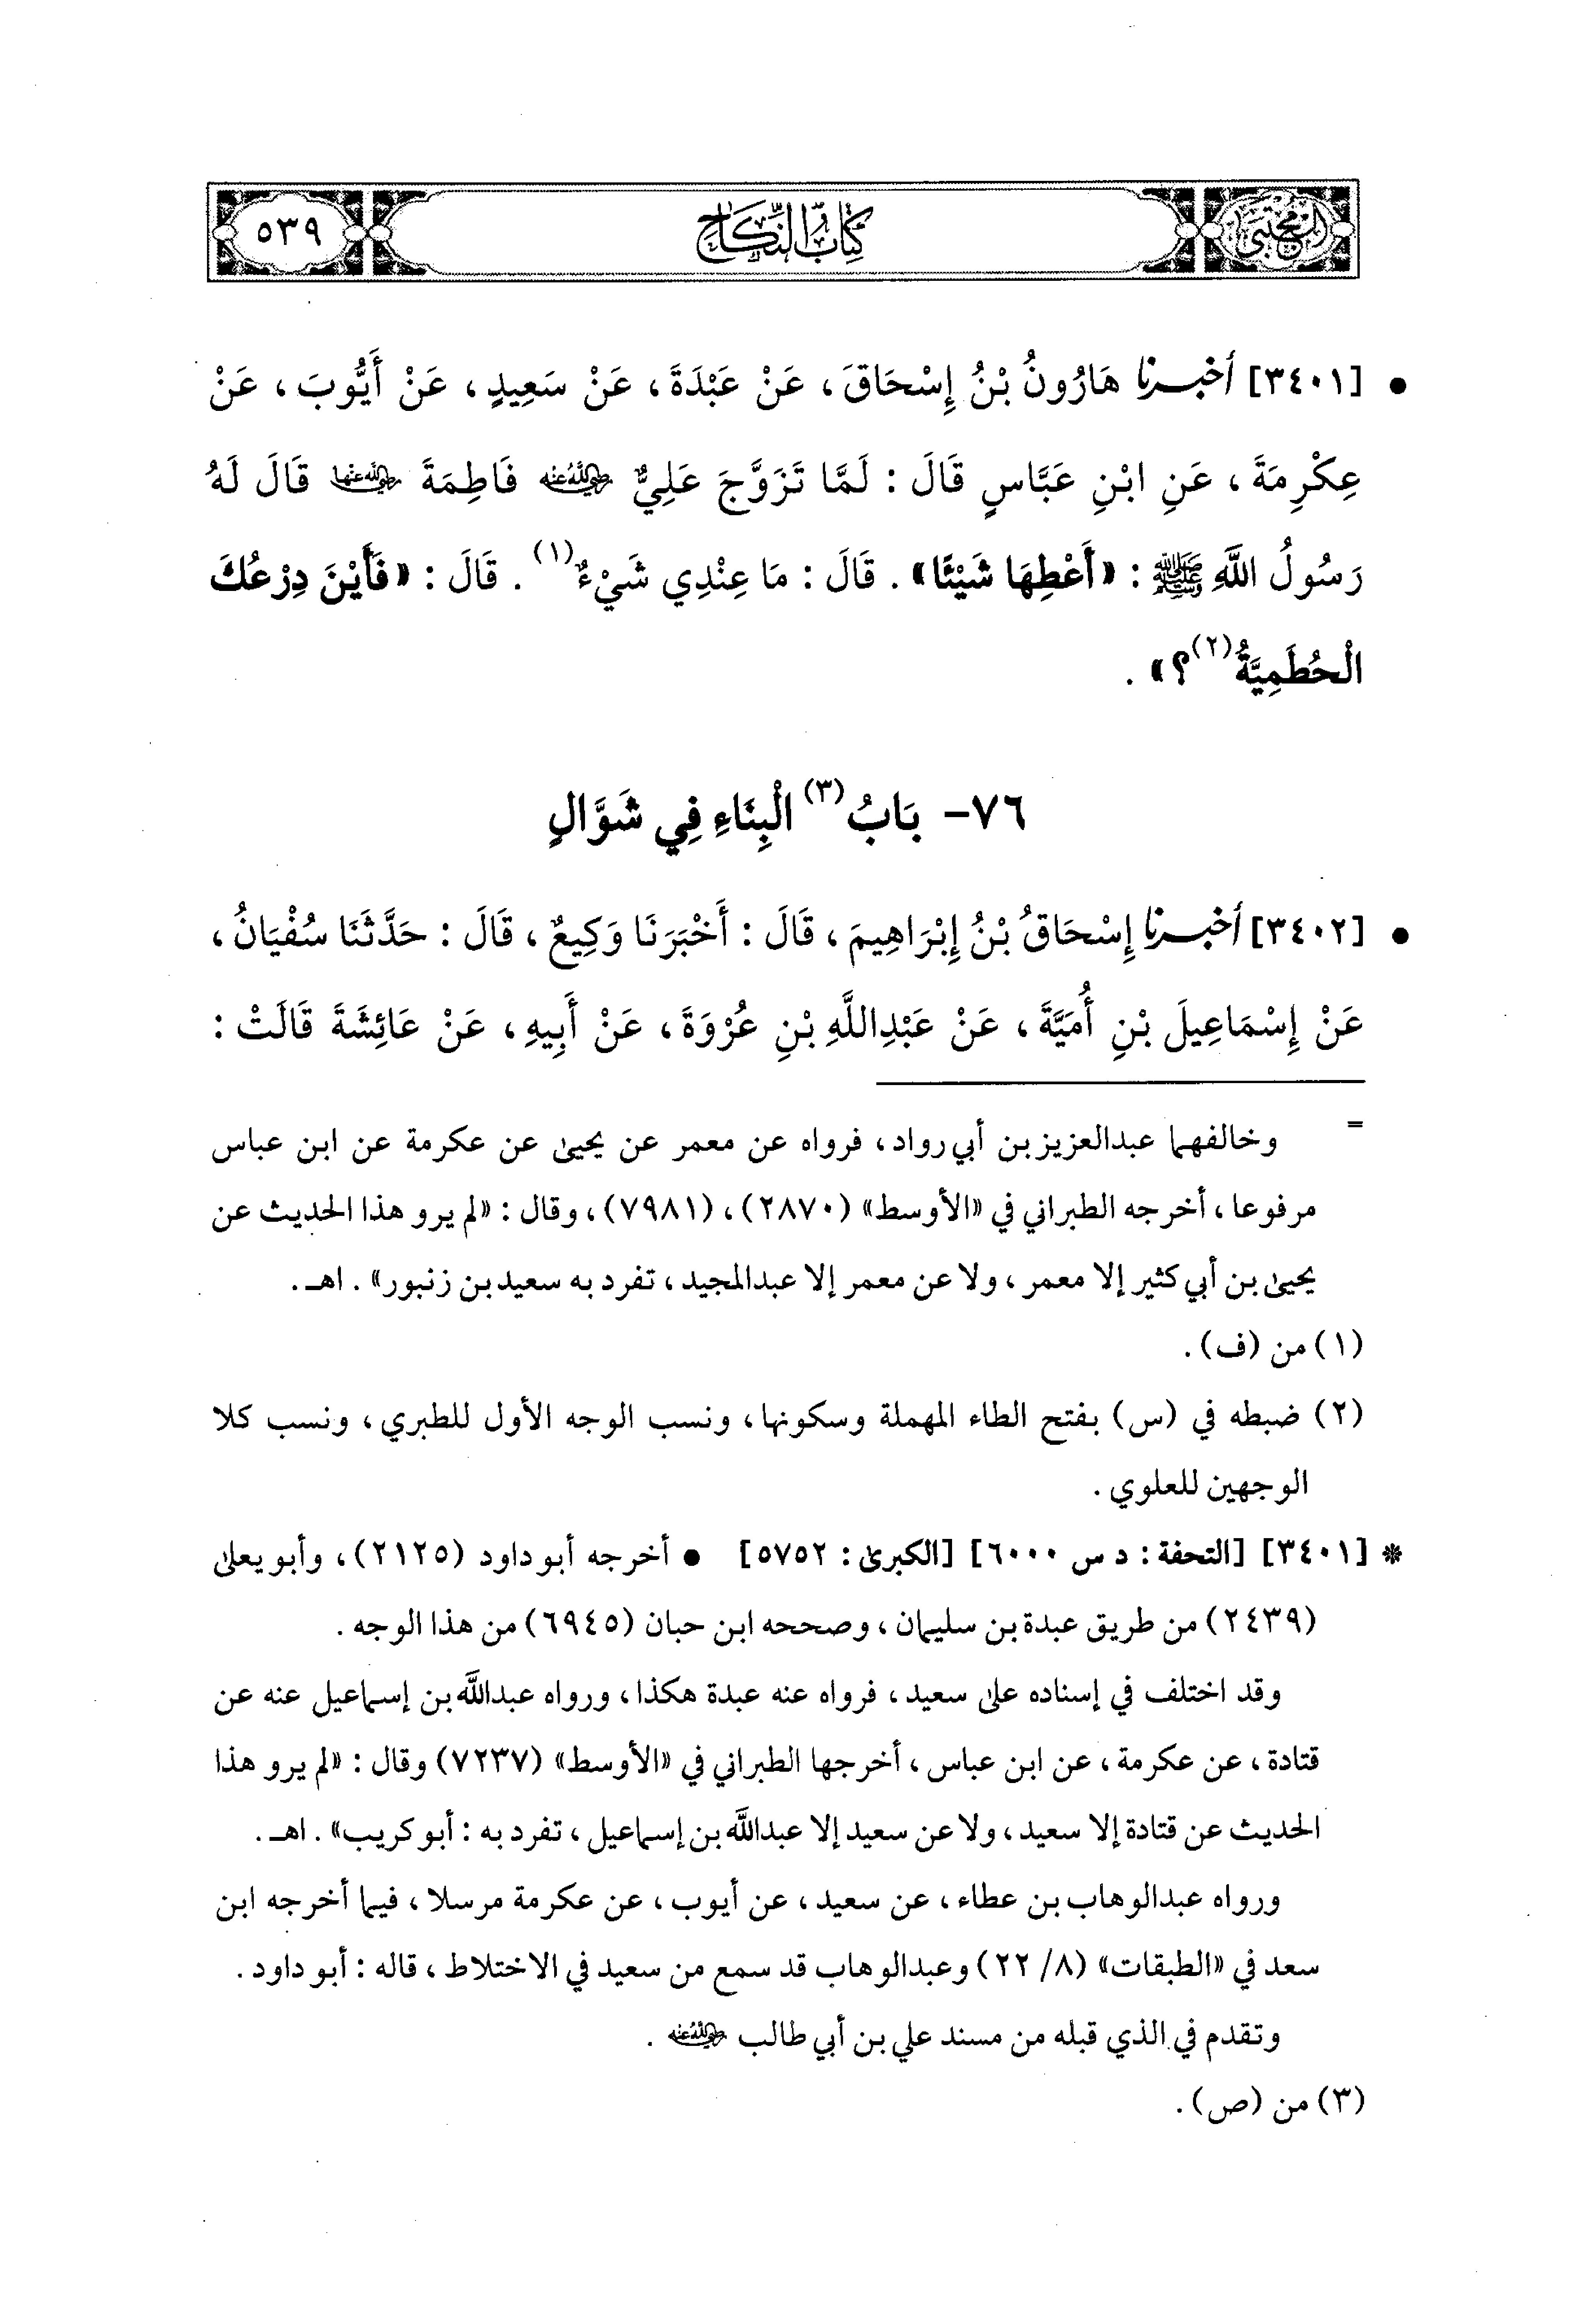 المجتبى
كِتَابُ النِّكَاحِ
٥٣٩
• [٣٤٠١] أخبرنا هَارُونُ بْنُ إِسْحَاقَ، عَنْ عَبْدَةَ، عَنْ سَعِيدٍ، عَنْ أَيُّوبَ، عَنْ
عِكْرِمَةَ، عَنِ ابْنِ عَبَّاسٍ قَالَ : لَمَّا تَزَوَّجَ عَلِيٌّ رضي الله عنه فَاطِمَةَ رضي الله عنها قَالَ لَهُ
رَسُولُ اللَّهِ ﷺ : «أَعْطِهَا شَيْئًا» . قَالَ : مَا عِنْدِي شَيْءٌ(١) . قَالَ : «فَأَيْنَ دِرْعُكَ
الْحُطَمِيَّةُ(٢)؟» .
٧٦- بَابُ(٣) الْبِنَاءِ فِي شَوَّالٍ
• [٣٤٠٢] أخبرنا إِسْحَاقُ بْنُ إِبْرَاهِيمَ، قَالَ : أَخْبَرَنَا وَكِيعٌ، قَالَ : حَدَّثَنَا سُفْيَانُ،
عَنْ إِسْمَاعِيلَ بْنِ أُمَيَّةَ، عَنْ عَبْدِاللَّهِ بْنِ عُرْوَةَ، عَنْ أَبِيهِ، عَنْ عَائِشَةَ قَالَتْ :
= وخالفهما عبدالعزيز بن أبي رواد، فرواه عن معمر عن يحيى عن عكرمة عن ابن عباس
مرفوعا، أخرجه الطبراني في «الأوسط» (٢٨٧٠)، (٧٩٨١)، وقال : «لم يرو هذا الحديث عن
يحيى بن أبي كثير إلا معمر، ولا عن معمر إلا عبدالمجيد، تفرد به سعيد بن زنبور» . اهـ .
(١) من (ف) .
(٢) ضبطه في (س) بفتح الطاء المهملة وسكونها، ونسب الوجه الأول للطبري، ونسب كلا
الوجهين للعلوي .
* [٣٤٠١] [التحفة : د س ٦٠٠٠] [الكبرى : ٥٧٥٢] • أخرجه أبو داود (٢١٢٥)، وأبو يعلى
(٢٤٣٩) من طريق عبدة بن سليمان، وصححه ابن حبان (٦٩٤٥) من هذا الوجه .
وقد اختلف في إسناده على سعيد، فرواه عنه عبدة هكذا، ورواه عبدالله بن إسماعيل عنه عن
قتادة، عن عكرمة، عن ابن عباس، أخرجها الطبراني في «الأوسط» (٧٢٣٧) وقال : «لم يرو هذا
الحديث عن قتادة إلا سعيد، ولا عن سعيد إلا عبدالله بن إسماعيل، تفرد به : أبو كريب» . اهـ .
ورواه عبدالوهاب بن عطاء، عن سعيد، عن أيوب، عن عكرمة مرسلا، فيما أخرجه ابن
سعد في «الطبقات» (٨/ ٢٢) وعبدالوهاب قد سمع من سعيد في الاختلاط، قاله : أبو داود .
وتقدم في الذي قبله من مسند علي بن أبي طالب رضي الله عنه .
(٣) من (ص) .